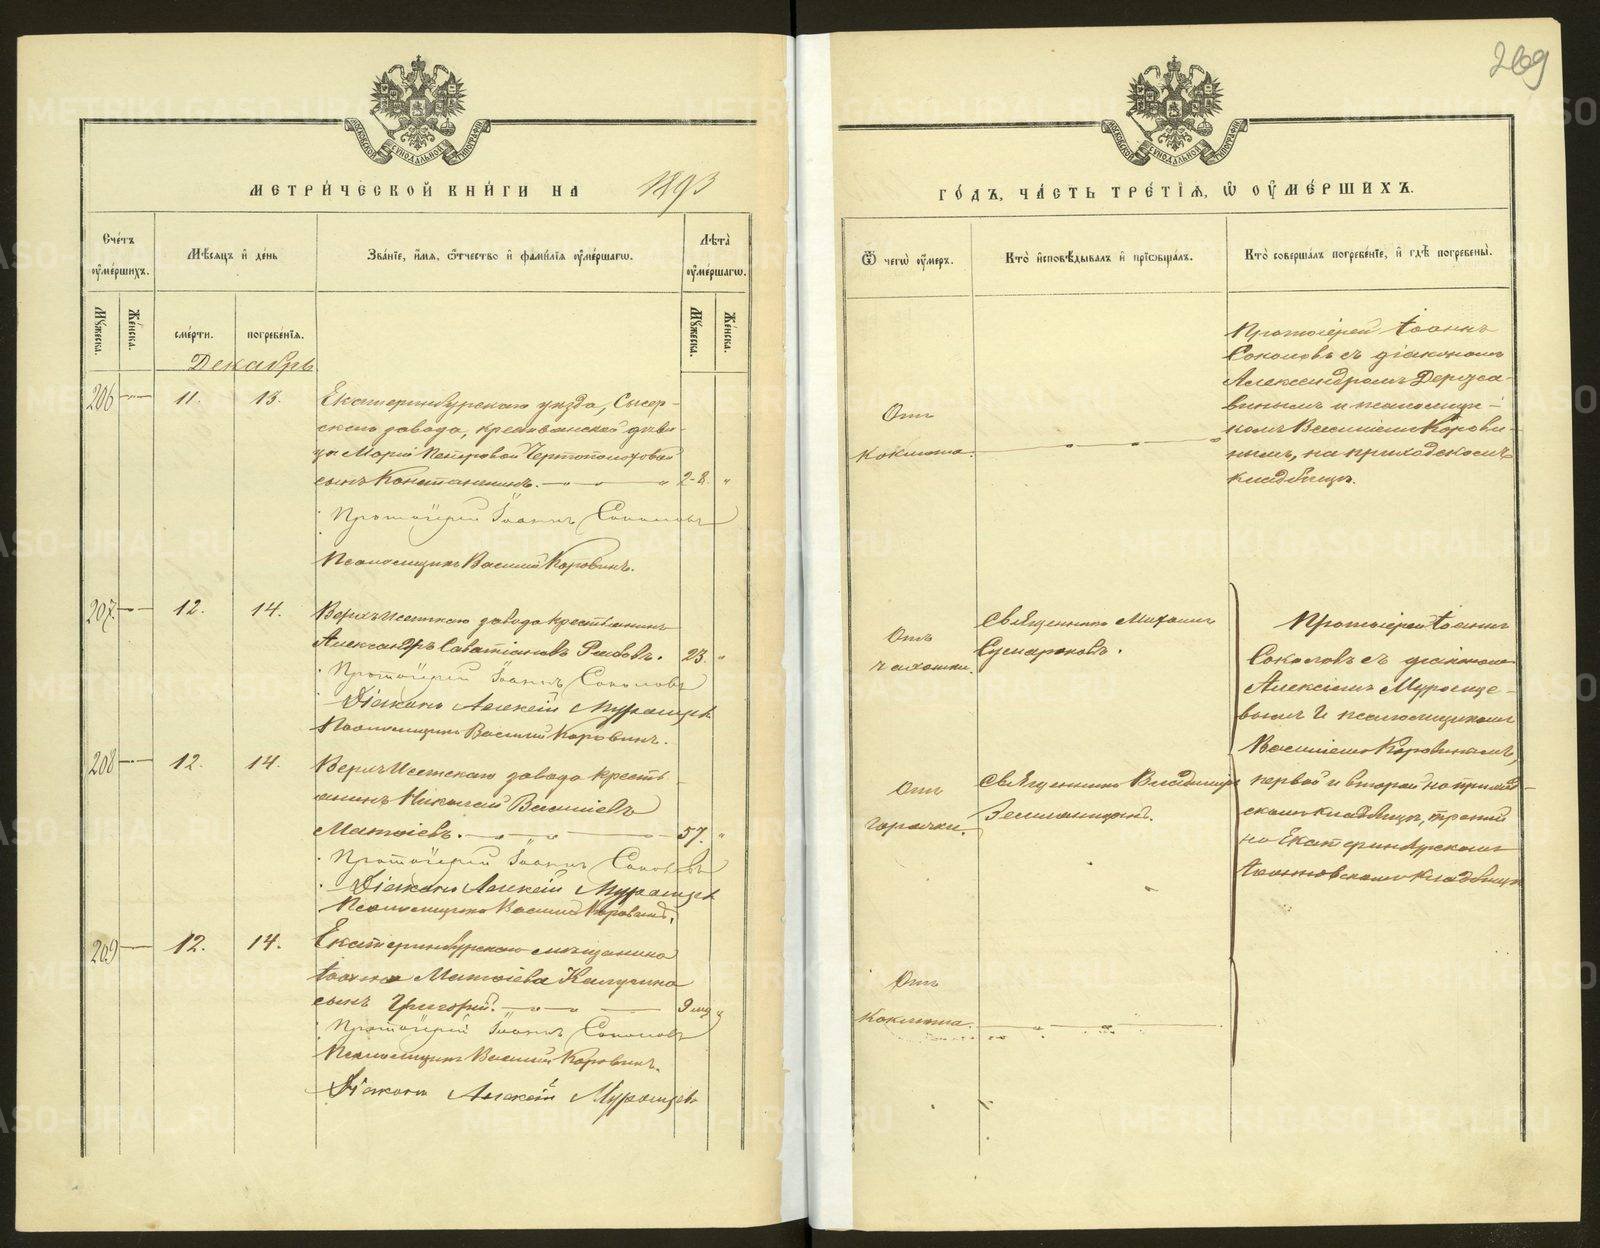 269
МЕТРИ́ЧЕСКОЙ КНИ́ГИ НА 1893
ГО́ДЪ, ЧА́СТЬ ТРЕ́ТІѦ, Ѡ҆ ОУ҆МЕ́РШИХЪ.
Сче́тъ оу҆ме́ршихъ.
Мѣ́сѧцъ и҆ де́нь
Зва́нїе, и҆́мѧ, ѻ҆́тчество и҆ фами́лїѧ оу҆ме́ршагѡ.
Лѣ̑та оу҆ме́ршагѡ.
Ѿ чегѡ̀ оу҆́меръ.
Кто̀ и҆сповѣ́дывалъ и҆ прїѡбща́лъ.
Кто̀ соверша́лъ погребе́нїе, и҆ гдѣ̀ погребены̀.
Мꙋ́жеска.
Же́нска.
сме́рти.
погребе́нїѧ.
Мꙋ́жеска.
Же́нска.
Декабрь
206 - " - 11. 13. Екатеринбургскаго уѣзда, Сысер-
скаго завода, крестьянской дѣви-
цы Маріи Петровой Чертополоховой
сынъ Константинъ. 2-8. "
Протоіерей Іоаннъ Соколовъ
Псаломщикъ Василій Коровинъ.
Отъ
коклюша.
Протоіерей Іоаннъ
Соколовъ съ діакономъ
Александромъ Держа-
винымъ и псаломщи-
комъ Василіемъ Корови-
нымъ, на приходскомъ
кладбищѣ.
207. 12. 14. Верхъ-Исетскаго завода крестьянинъ
Александръ Савватіановъ Рябовъ. 23. "
Протоіерей Іоаннъ Соколовъ
Діаконъ Алексій Мурашцевъ
Псаломщикъ Василій Коровинъ.
Отъ
чахотки.
Священникъ Михаилъ
Сумароковъ.
Протоіерей Іоаннъ
Соколовъ съ діакономъ
Алексіемъ Мурашце-
вымъ и псаломщикомъ
Василіемъ Коровинымъ,
первой и второй на приход-
скомъ кладбищѣ, третій
на Екатеринбургскомъ
кладбищѣ
208 12. 14. Верхъ-Исетскаго завода кресть-
янинъ Николай Васильевъ
57. "
Протоіерей Іоаннъ Соколовъ
Діаконъ Алексій Мурашцевъ
Псаломщикъ Василій Коровинъ.
Отъ
горячки.
Священникъ Владиміръ
Земляницынъ.
209 12. 14. Екатеринбургскаго мѣщанина
Іоанна Матѳіева Калугина
сынъ Григорій. 9 мц "
Протоіерей Іоаннъ Соколовъ
Псаломщикъ Василій Коровинъ.
Діаконъ Алексій Мурашцевъ
Отъ
коклюша.